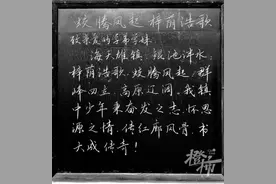 蛟腾凤起 梓荫浩歌
致亲爱的学弟学妹:
海天雄镇,银池泮水,
梓荫浩歌,蛟腾凤起,群
峰四立,高原辽阔。我镇
中少年乘奋发之志,怀思
源之情,传仁厚风骨,书
大成传奇!
橙柿